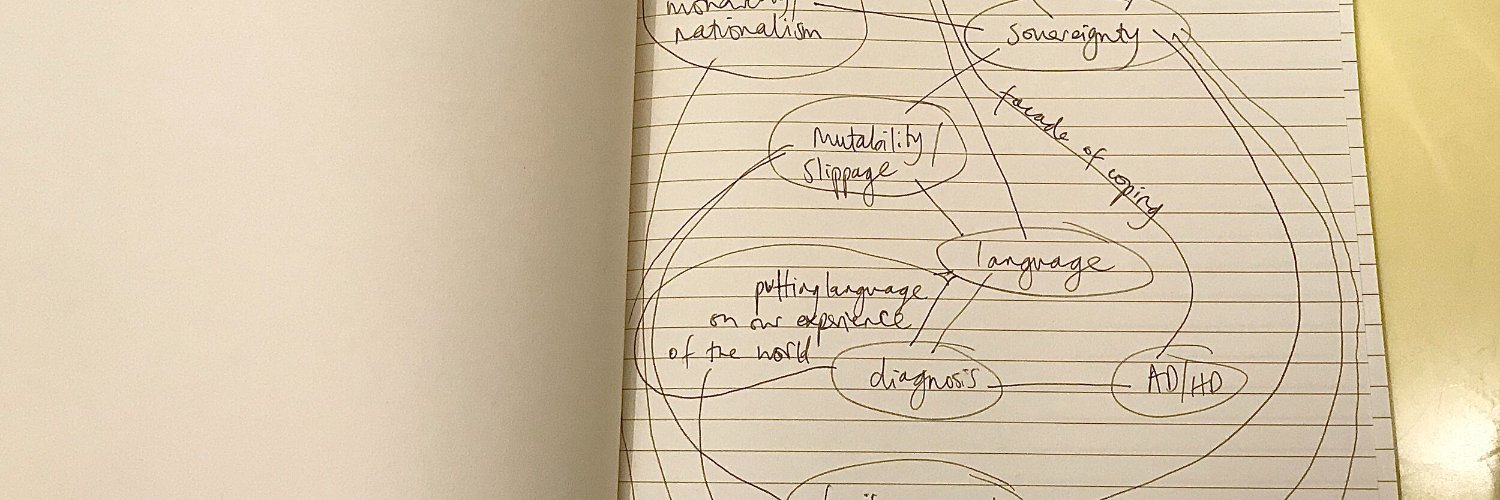 nationalism
sovereignty
facade of coping
mutability/
slippage
language
putting language
on our experience
of the world
diagnosis
AD/HD